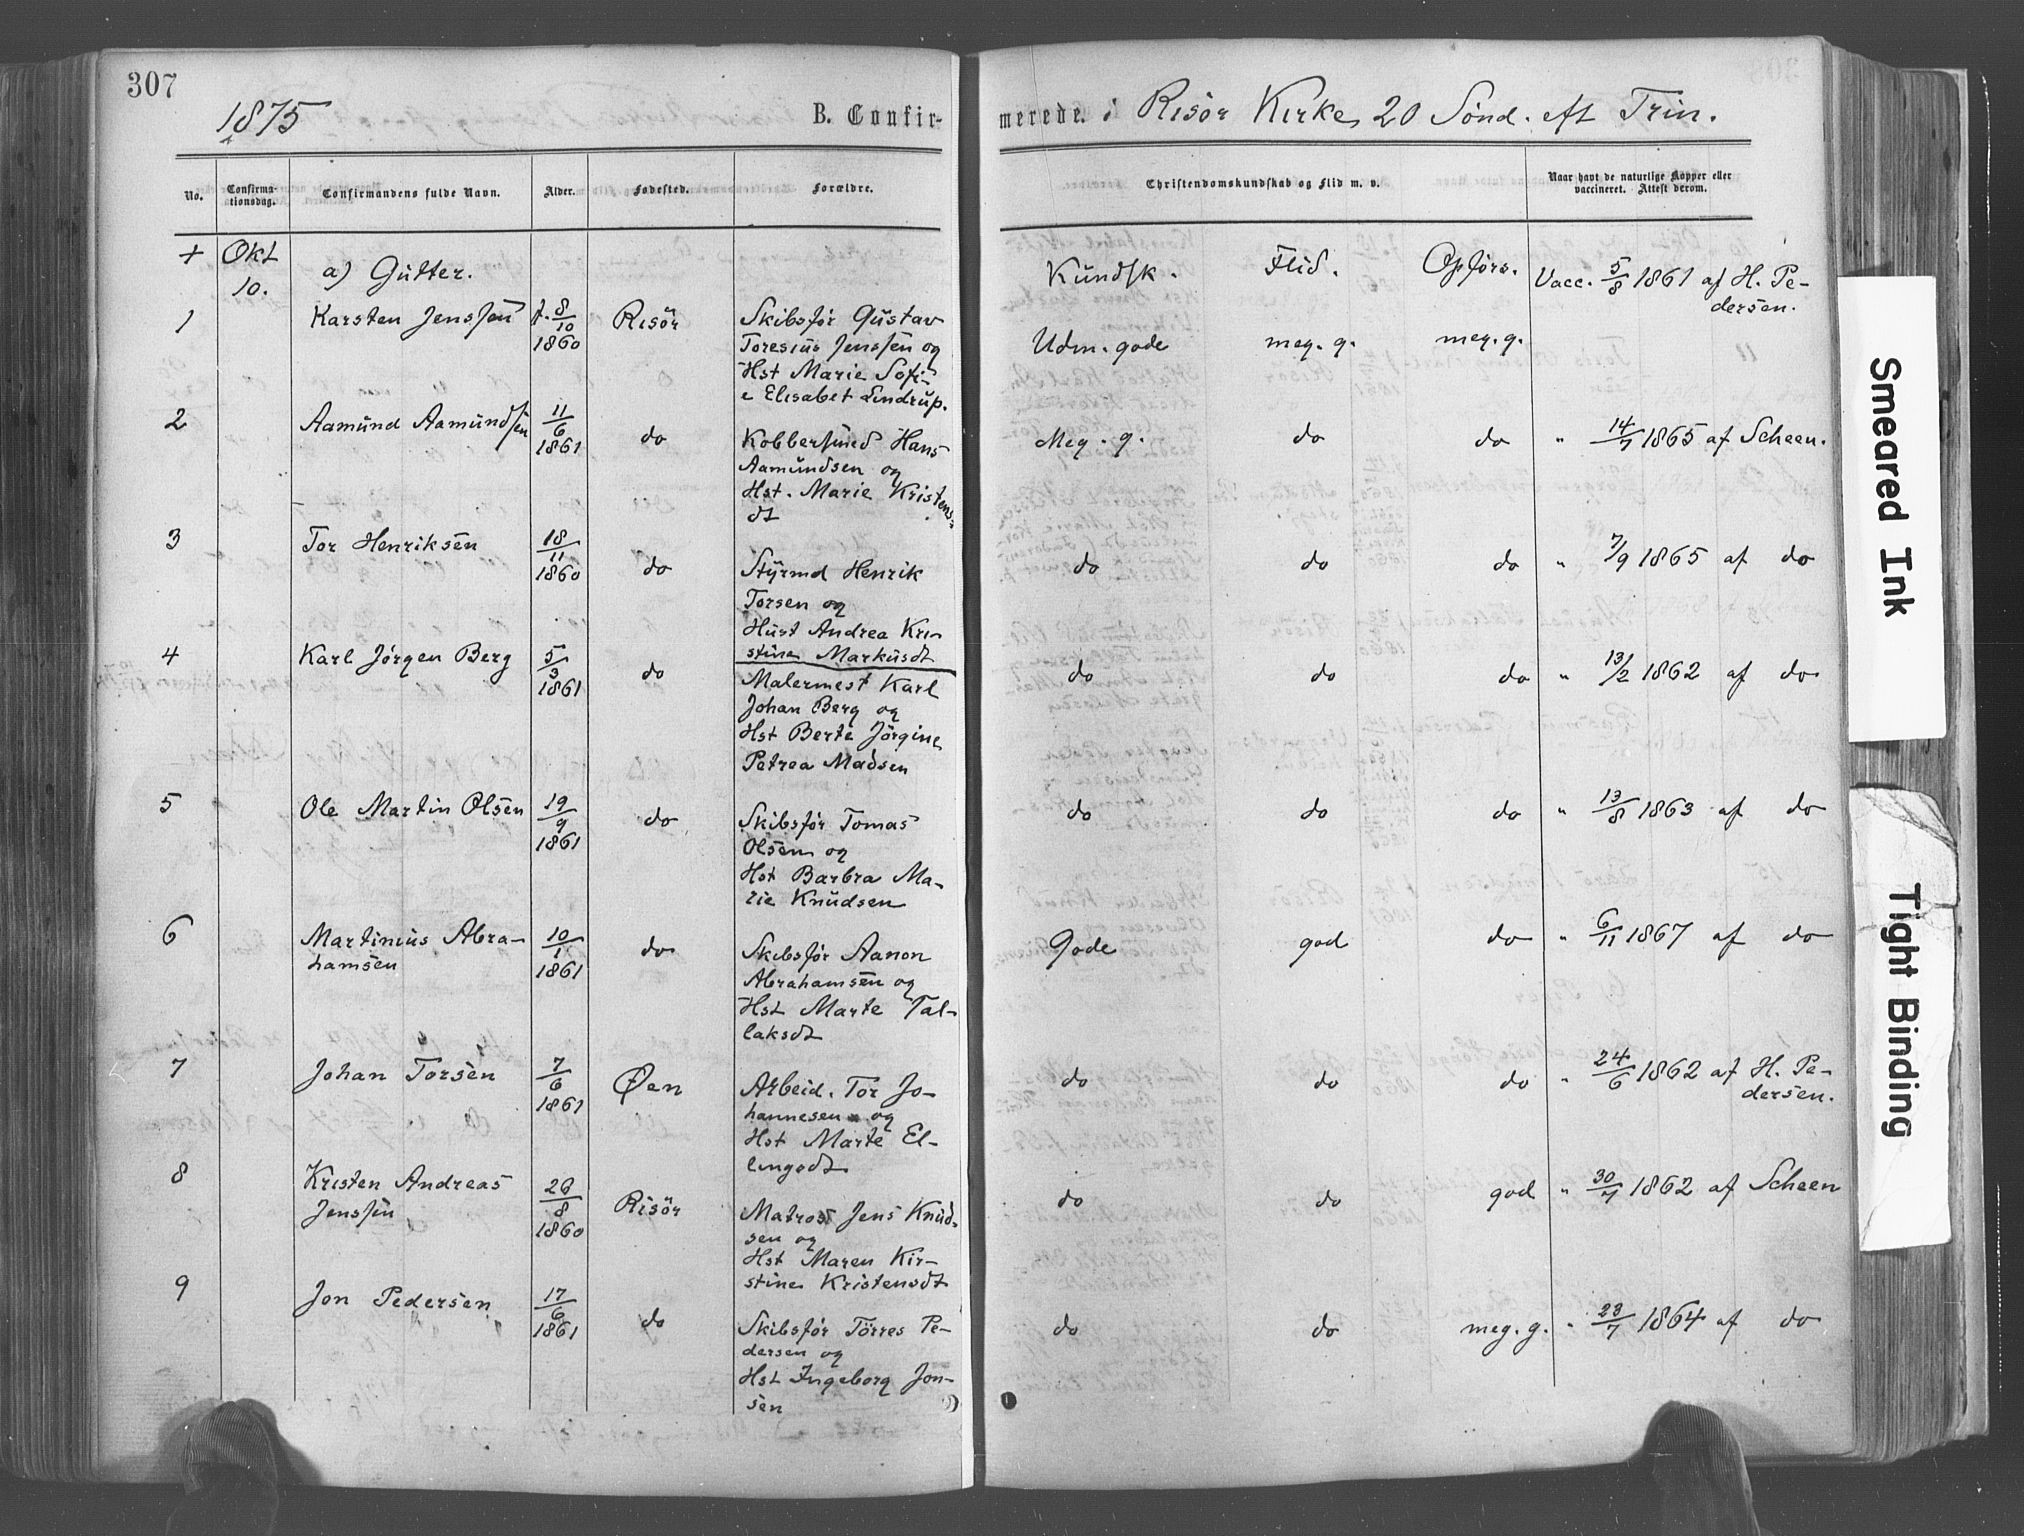 307
1875
B. Confir-
merede. i Risör Kirke, 20 Sönd. eft Trin.
No.
Confirma-
tionsdag.
Confirmandens fulde Navn.
Alder.
Fødested.
Forældre.
Christendomskundskab og Flid m. v.
Naar havt de naturlige Kopper eller
vaccineret. Attest derom.
+ Okt
10.
a) Gutter.
Kundsk. Flid. Opförs.
1 Karsten Jenssen f. 8/10 1860 Risör
Skibsför Gustav
Toresius Jenssen og
Hst Marie Sofi-
e Elisabet Lindrup.
Udm. gode meg. g. meg. g.
Vacc. 5/8 1861 af H. Pe-
dersen.
2 Aamund Aamundsen 11/6 1861 do
Kobbersmed Hans
Aamundsen og
Hst. Marie Kristens-
dt
Meg. g. do do " 14/7 1865 af Scheen.
3 Tor Henriksen 18/11 1860 do
Styrmd Henrik
Torsen og
Hust Andrea Kri-
stine Markusdt
do do do " 7/9 1865 af do
4 Karl Jørgen Berg 5/3 1861 do
Malermest Karl
Johan Berg og
Hst Berte Jörgine
Petrea Madsen
do do do " 13/2 1862 af do
5 Ole Martin Olsen 19/9 1861 do
Skibsför Tomas
Olsen og
Hst Barbra Ma-
rie Knudsen
do do do " 13/8 1863 af do
6 Martinius Abra-
hamsen 10/1 1861 do
Skibsför Aanon
Abrahamsen og
Hst Marte Tal-
laksdt
Gode god do " 6/11 1867 af do
7 Johan Torsen 7/6 1861 Øen
Arbeid. Tor Jo-
hannesen og
Hst Marte El-
lingsdt
do do do " 24/6 1862 af H. Pe-
dersen.
8 Kristen Andreas
Jenssen 26/8 1860 Risör
Matros Jens Knud-
sen og
Hst Maren Kir-
stine Kristensdt
do do god " 30/7 1862 af Scheen
9 Jon Pedersen 17/6 1861 do
Skibsför Törres Pe-
dersen og
Hst Ingeborg Jon-
sen
do do meg. g. " 23/7 1864 af do
Smeared Ink
Tight Binding